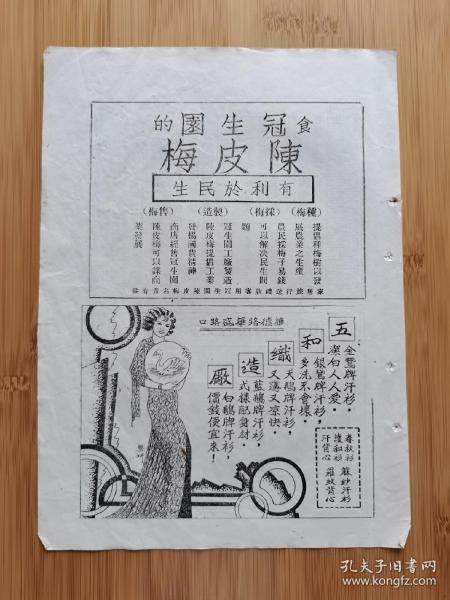 食冠生園的
陳皮梅
有利於民生
（種梅）
提倡種梅樹以發
展農業之生產
（採梅）
農民採梅子易錢
可以解決民生問
題
（製造）
冠生園工廠製造
陳皮梅提倡工業
發揚國貨精神
（售梅）
商店經售冠生園
陳皮梅可以謀商
業發展
華德路華盛路口
五和織造廠
金鷄牌汗衫，
潔白人人愛。
銀鷄牌汗衫，
多洗不會壞。
天鵝牌汗衫，
又薄又涼快。
藍鵝牌汗衫，
式樣配身材。
白鵝牌汗衫，
價錢便宜來！
春秋衫 麻紗汗衫
衛和衫
汗背心 羅紋背心
孔夫子旧书网
www.kongfz.com